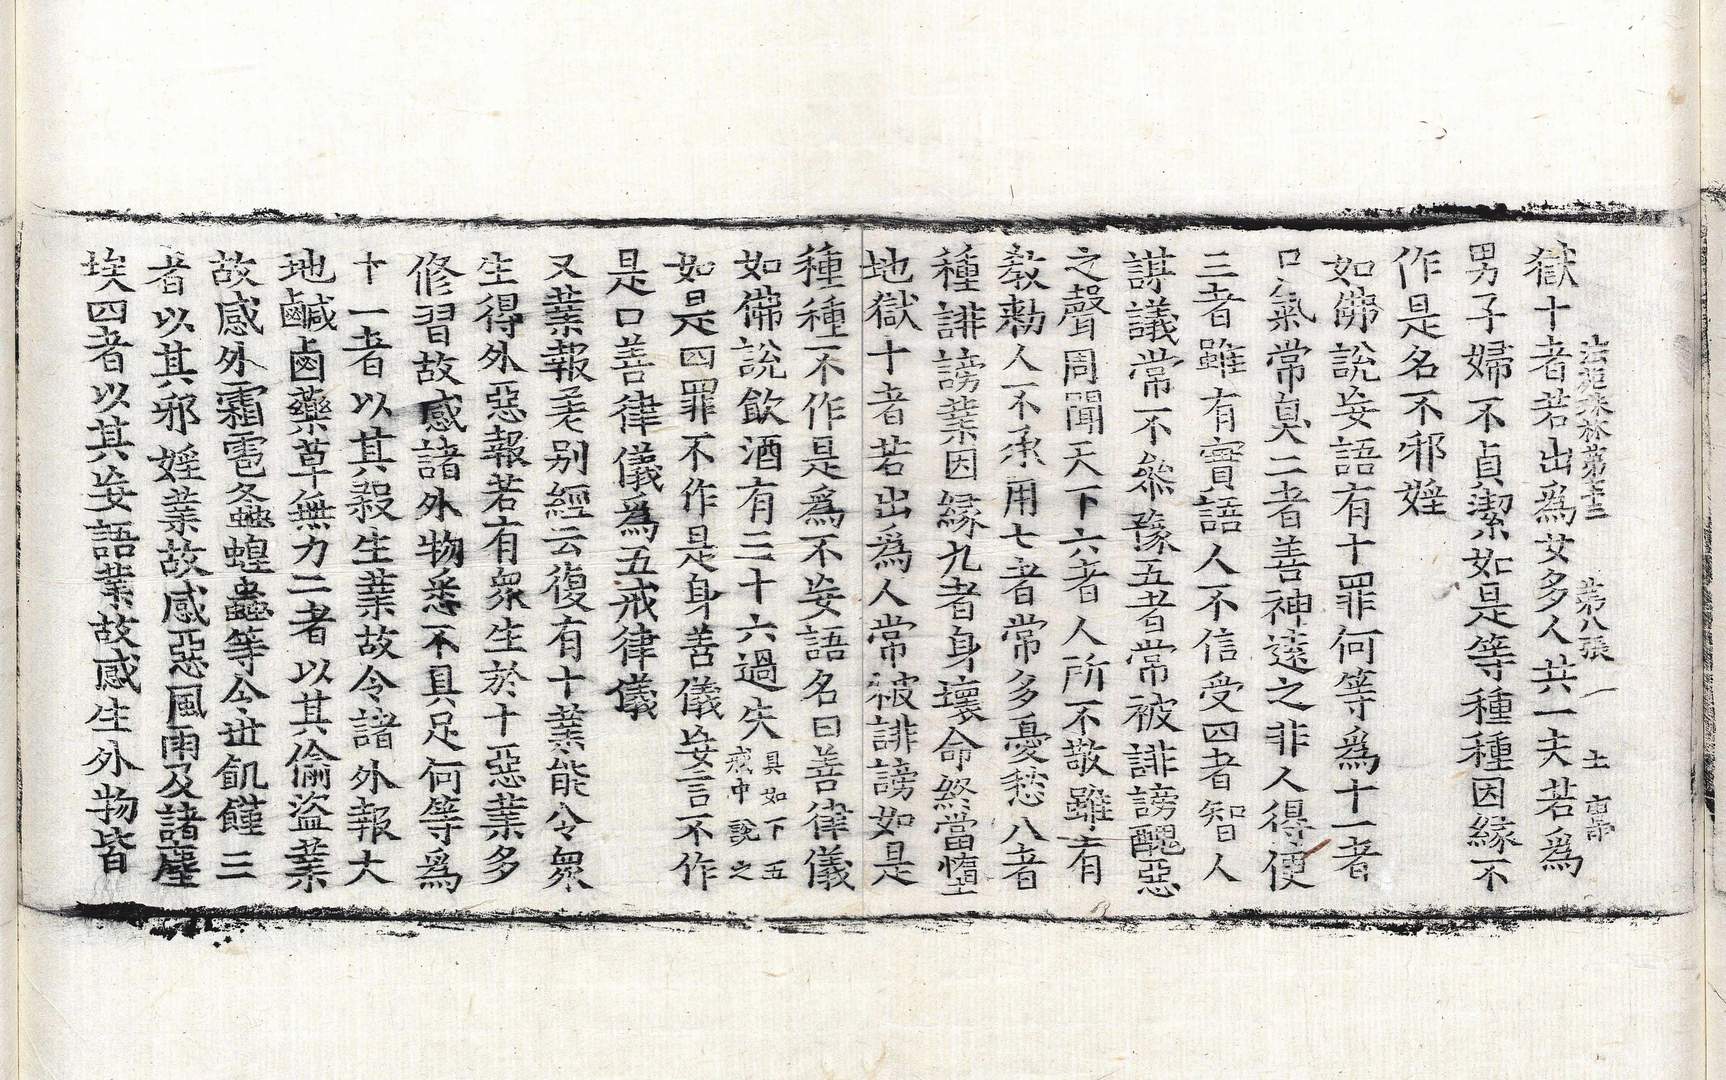 法苑珠林第七十三　第八張　一　士　市帶
獄十者若出爲女多人共一夫若爲
男子婦不貞潔如是等種種因緣不
作是名不邪婬
如佛說妄語有十罪何等爲十一者
口氣常臭二者善神遠之非人得便
三者雖有實語人不信受四者智人
謀議常不叅豫五者常被誹謗醜惡
之聲周聞天下六者人所不敬雖有
敎勑人不承用七者常多憂愁八者
種誹謗業因緣九者身壞命終當墮
地獄十者若出爲人常被誹謗如是
種種不作是爲不妄語名曰善律儀
如佛說飮酒有三十六過失具如下五戒中說之
如是四罪不作是身善儀妄言不作
是口善律儀爲五戒律儀
又業報差别經云復有十業能令衆
生得外惡報若有衆生於十惡業多
修習故感諸外物悉不具足何等爲
十一者以其殺生業故令諸外報大
地鹹鹵藥草無力二者以其偷盜業
故感外霜雹螽蝗蟲等令世飢饉三
者以其邪婬業故感惡風雨及諸塵
埃四者以其妄語業故感生外物皆